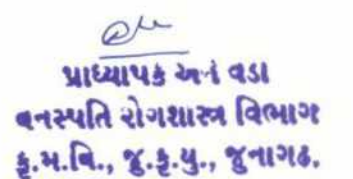 પ્રાધ્યાપક અને વડા
વનસ્પતિ રોગશાસ્ત્ર વિભાગ
કૃ.મ.વિ., જુ.કૃ.યુ., જુનાગઢ.